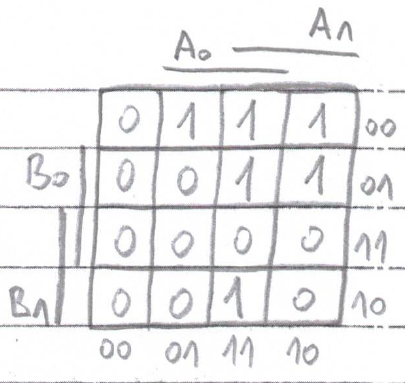 A0 A1
0 1 1 1 00
B0 0 0 1 1 01
0 0 0 0 11
B1 0 0 1 0 10
00 01 11 10